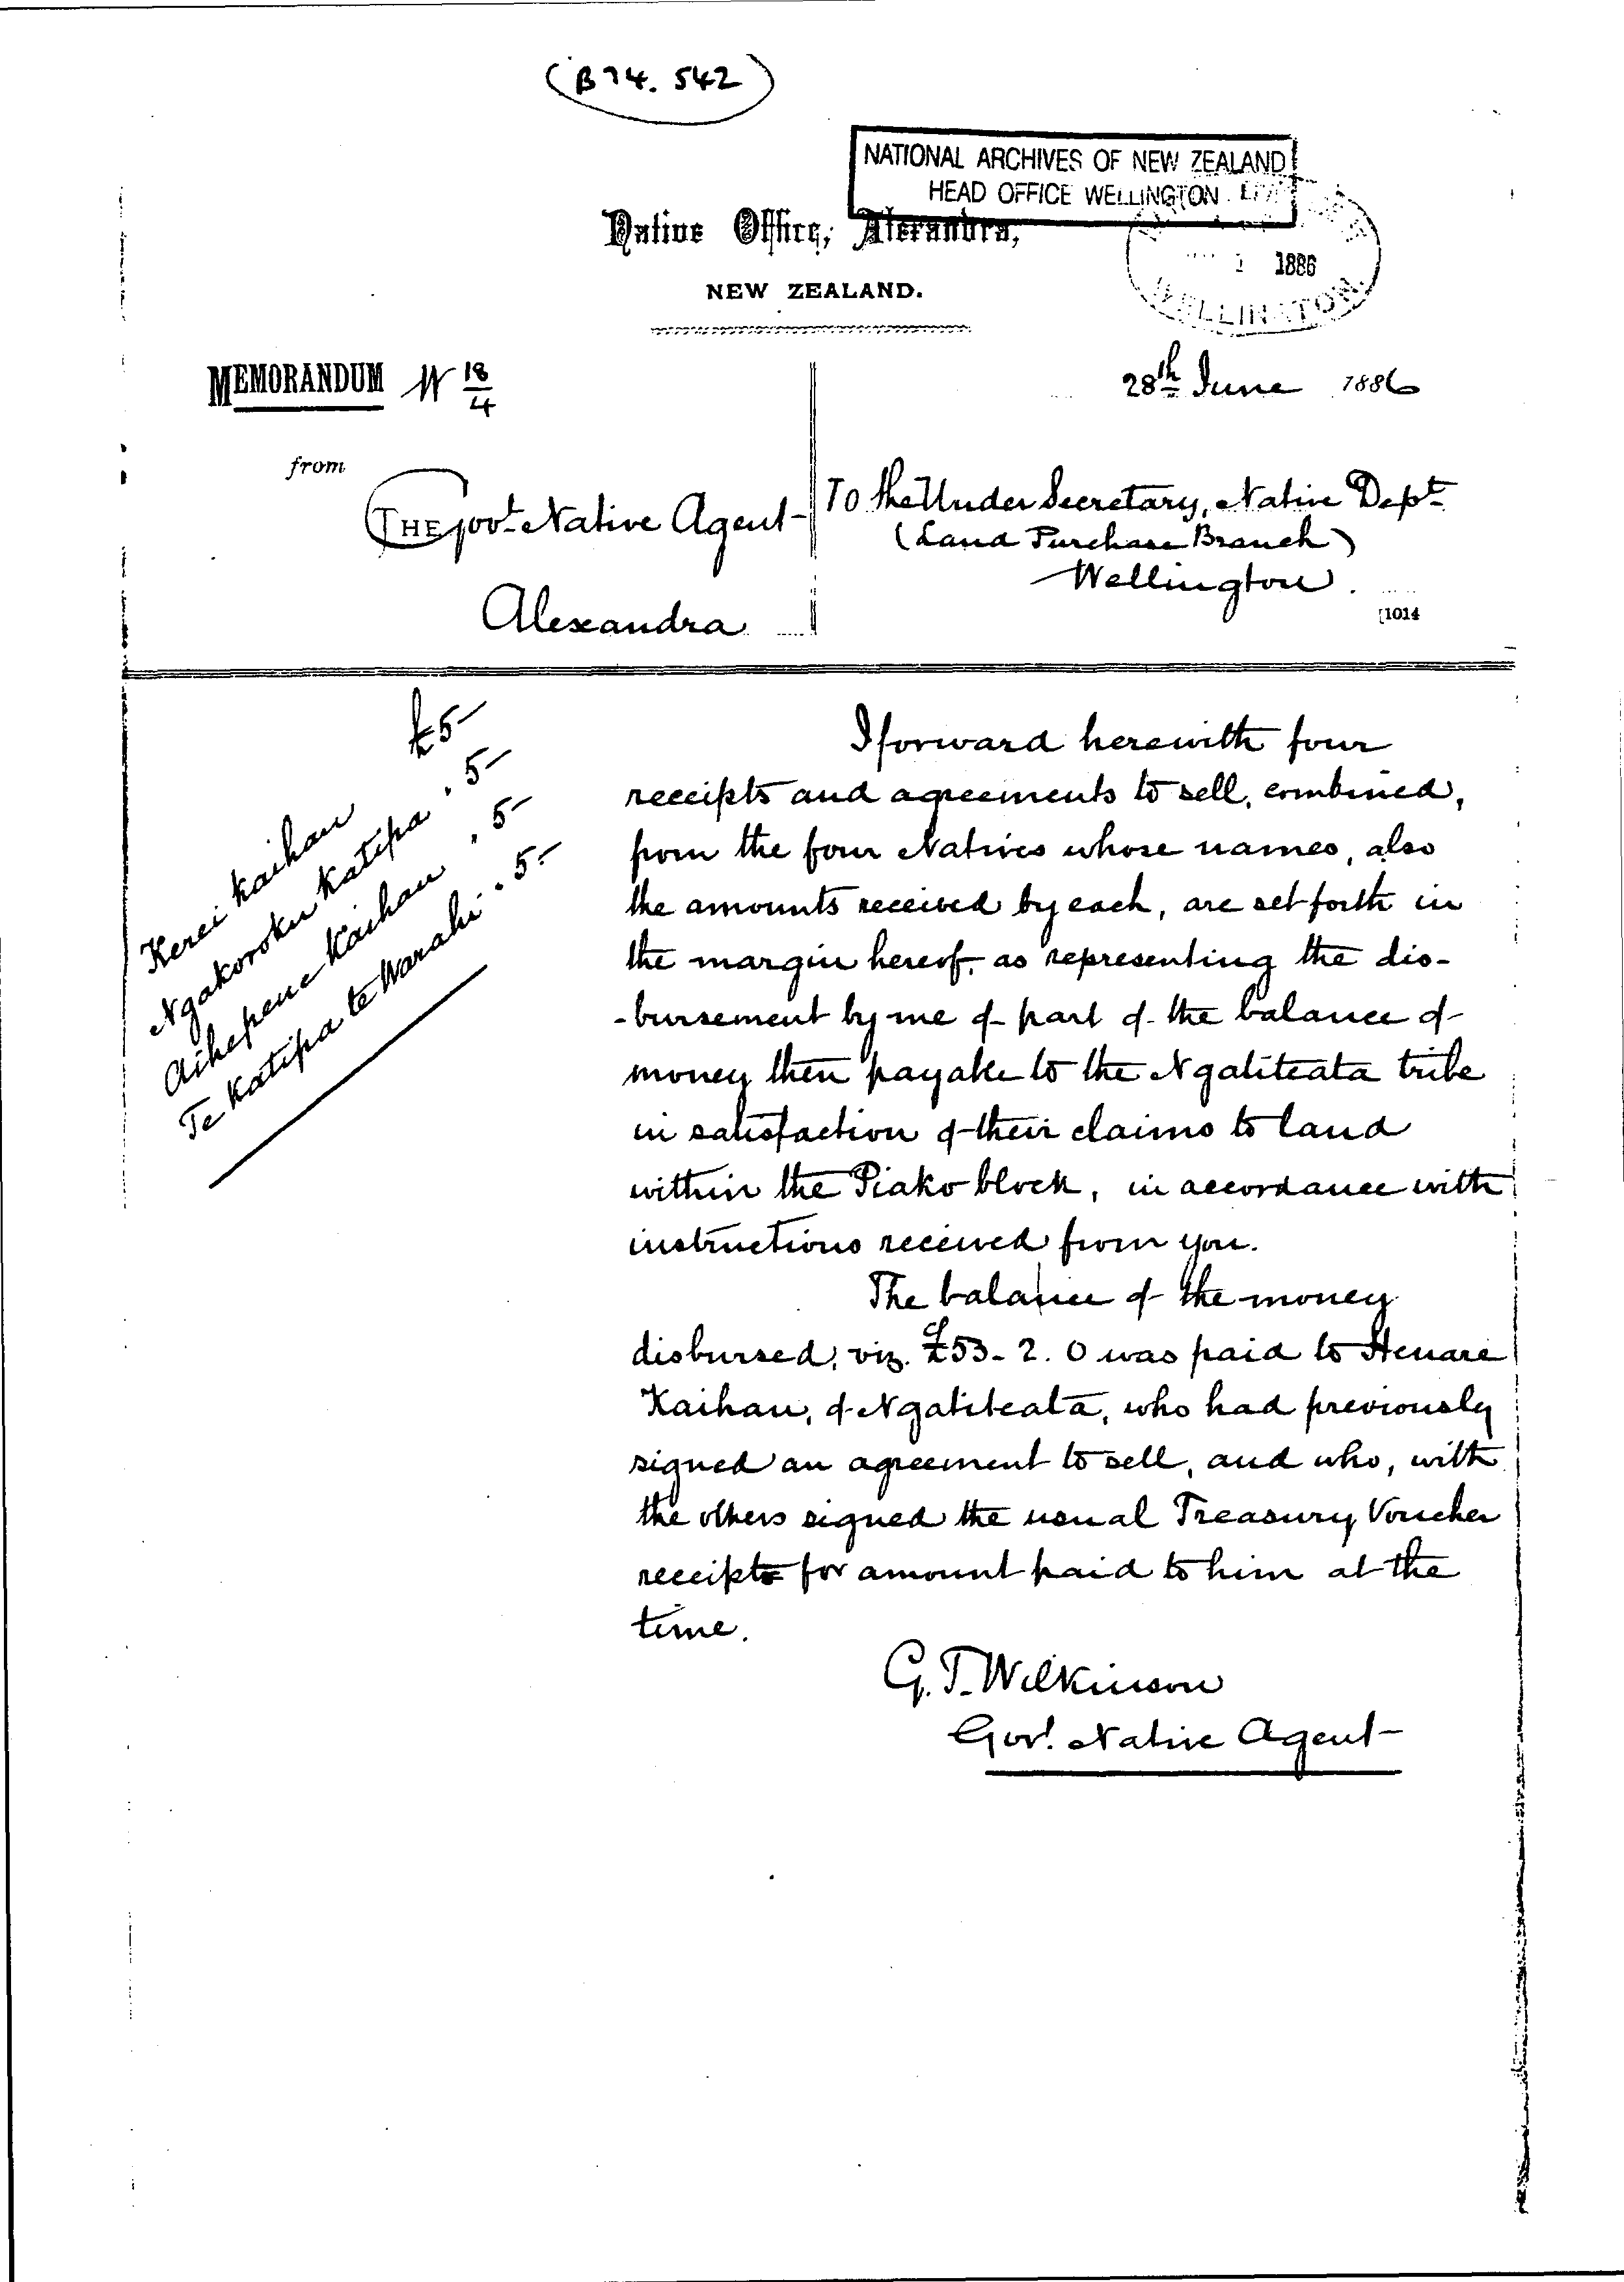 (B74. 542)
NATIONAL ARCHIVES OF NEW ZEALAND
HEAD OFFICE WELLINGTON
Native Office, Alexandra,
NEW ZEALAND.
1 1886
WELLINGTON.
MEMORANDUM N 18/4
28th June 1886
from
THE Govt Native Agent
Alexandra
To the Under Secretary, Native Dept
(Land Purchase Branch)
Wellington.
[1014
Kerei Kaihau £5-
Ngakoroku Katipa " 5-
Aihepene Kaihau " 5-
Te Katipa te Warahi " 5-
I forward herewith four
receipts and agreements to sell, combined,
from the four Natives whose names, also
the amounts received by each, are set forth in
the margin hereof, as representing the dis-
-bursement by me of part of the balance of
money then payable to the Ngatiteata tribe
in satisfaction of their claims to land
within the Piako block, in accordance with
instructions received from you.
The balance of the money
disbursed, viz. £53-2.0 was paid to Henare
Kaihau, of Ngatiteata, who had previously
signed an agreement to sell, and who, with
the others signed the usual Treasury Voucher
receipts for amount paid to him at the
time.
G. T. Wilkinson
Govt. Native Agent